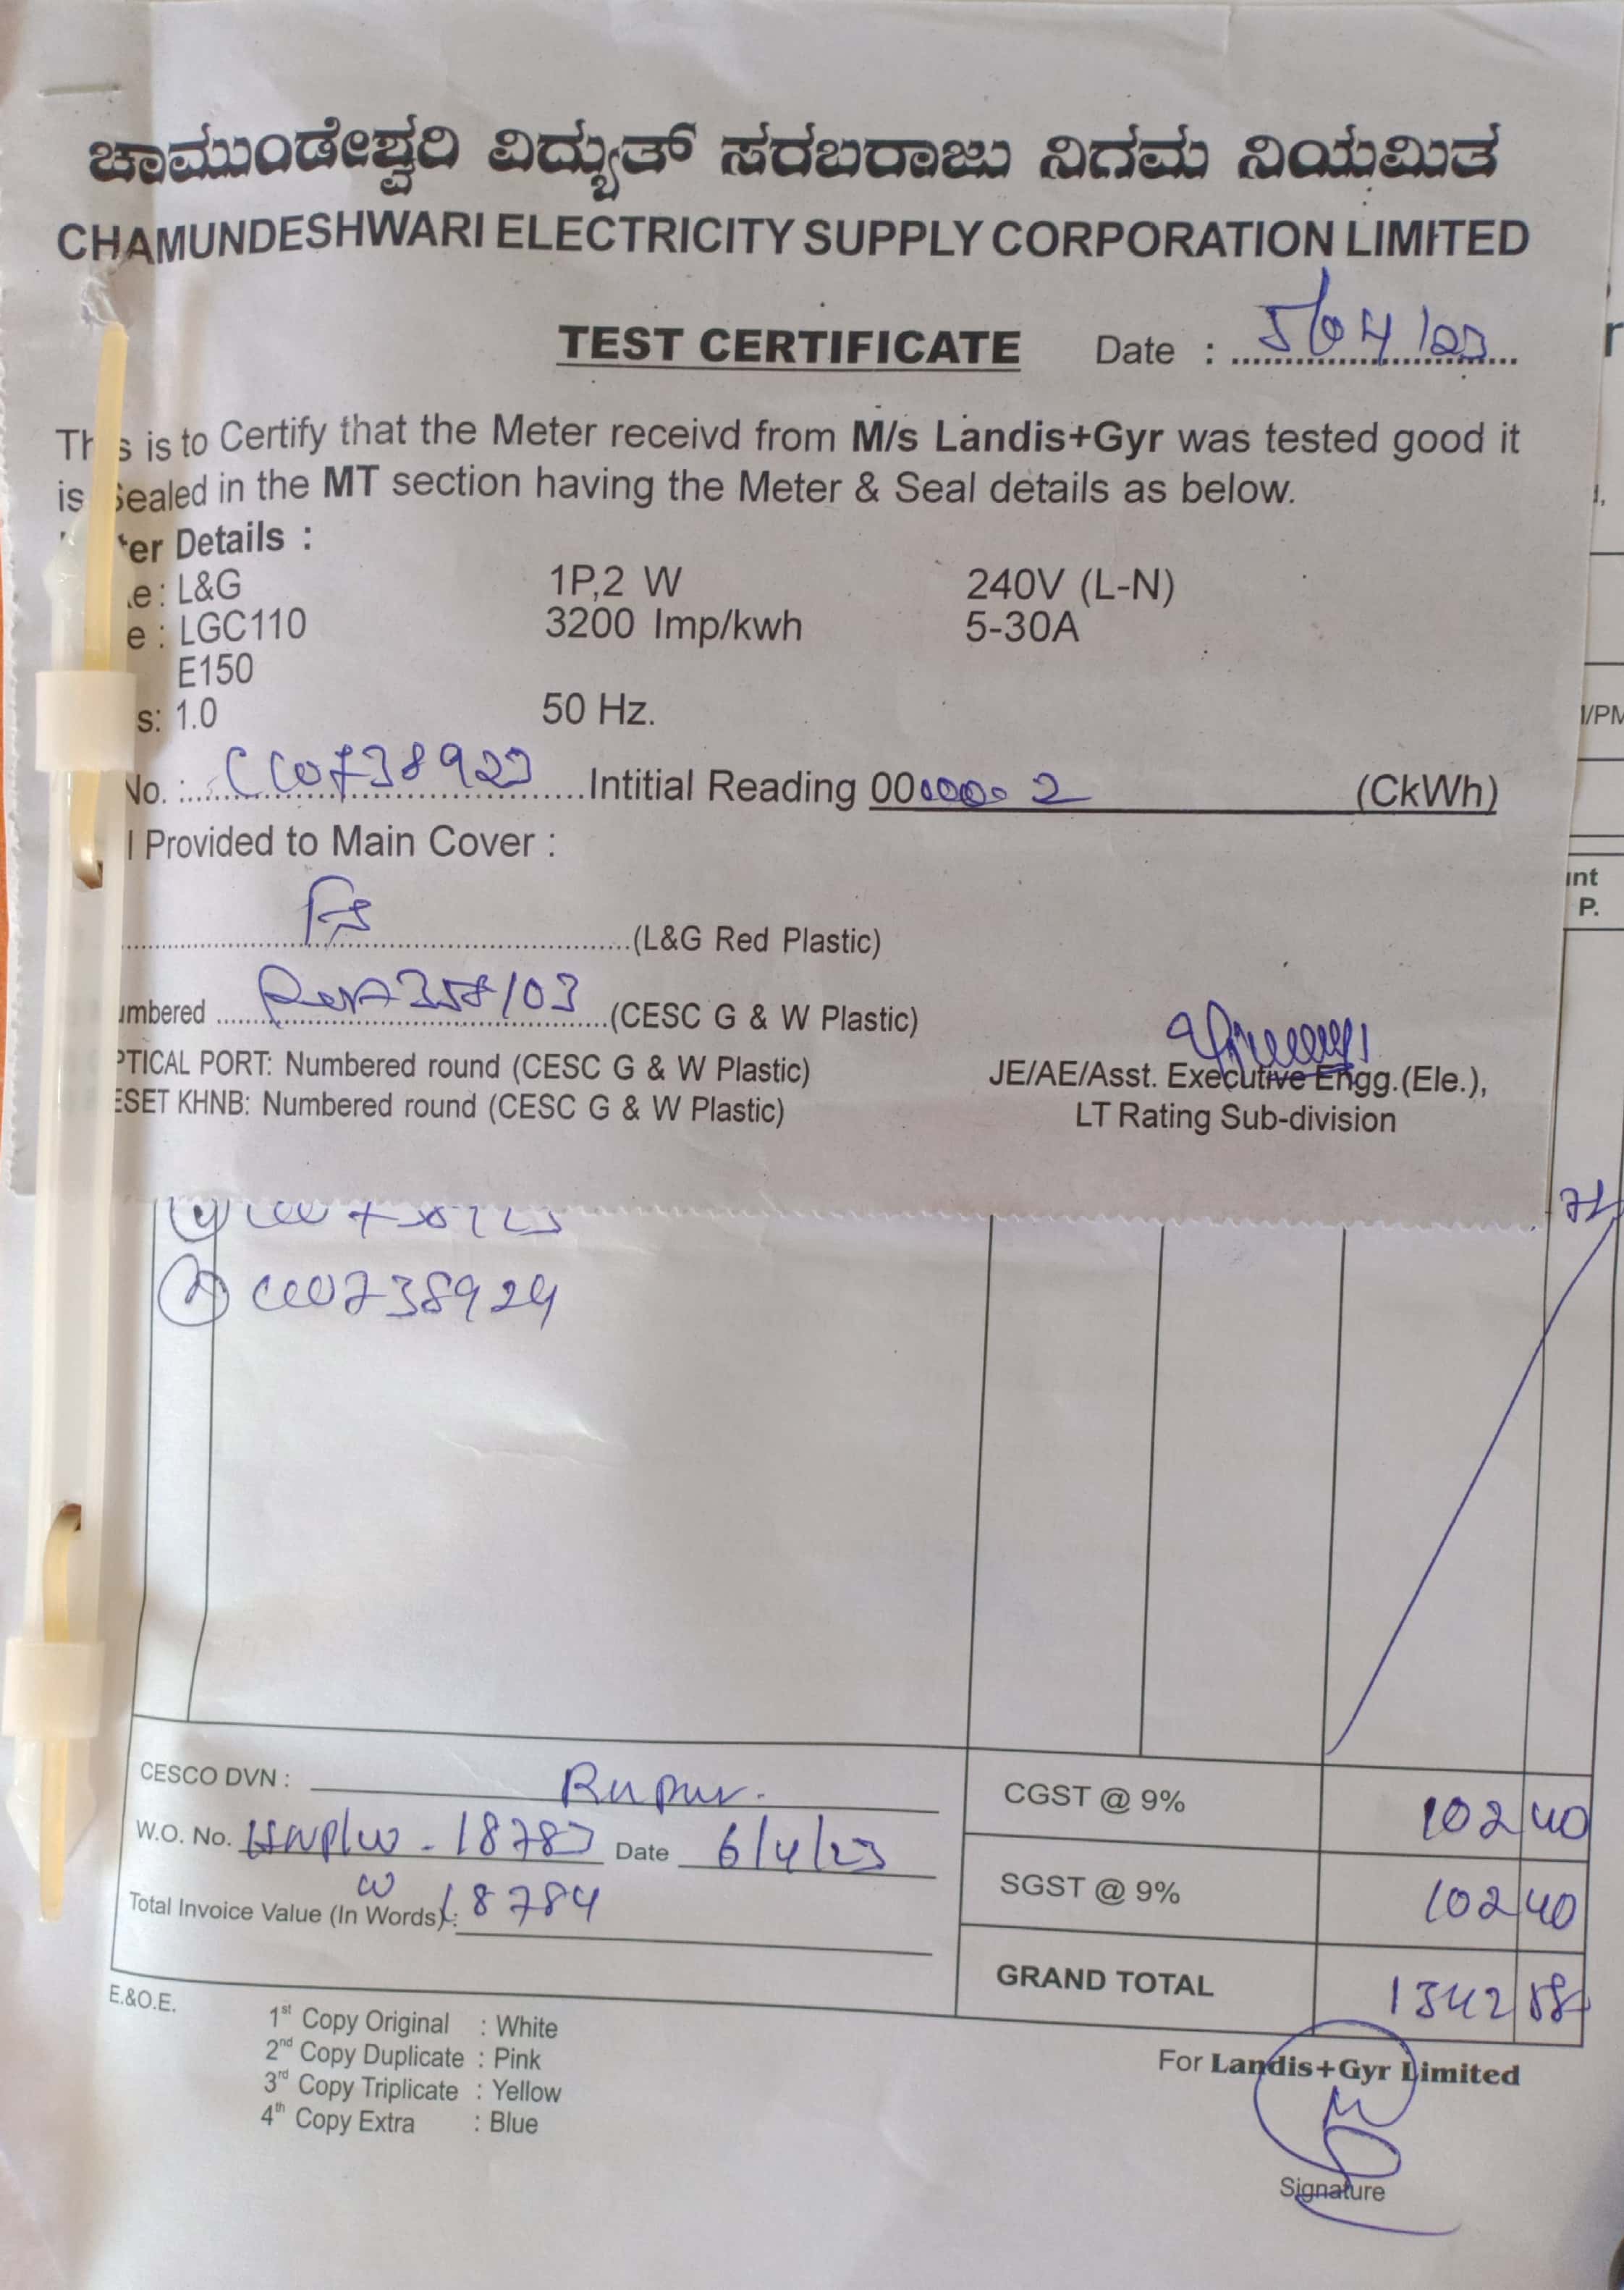 ಚಾಮುಂಡೇಶ್ವರಿ ವಿದ್ಯುತ್ ಸರಬರಾಜು ನಿಗಮ ನಿಯಮಿತ
CHAMUNDESHWARI ELECTRICITY SUPPLY CORPORATION LIMITED
TEST CERTIFICATE Date : 5/04/23
is to Certify that the Meter receivd from M/s Landis+Gyr was tested good it
is Sealed in the MT section having the Meter & Seal details as below.
Details :
: L&G 1P,2 W 240V (L-N)
: LGC110 3200 Imp/kwh 5-30A
E150
s: 1.0 50 Hz.
No. : CC0738923 Intitial Reading 0000000 2 (CkWh)
Provided to Main Cover :
(L&G Red Plastic)
umbered (CESC G & W Plastic)
PTICAL PORT: Numbered round (CESC G & W Plastic) JE/AE/Asst. Executive Engg.(Ele.),
ESET KHNB: Numbered round (CESC G & W Plastic) LT Rating Sub-division
CC0738924
CESCO DVN :
W.O. No. 18783 Date 6/4/23
Total Invoice Value (In Words) : 18784
CGST @ 9% 102 40
SGST @ 9% 102 40
GRAND TOTAL 1342
E.&O.E.
1st Copy Original : White
2nd Copy Duplicate : Pink
3rd Copy Triplicate : Yellow
4th Copy Extra : Blue
For Landis+Gyr Limited
Signature